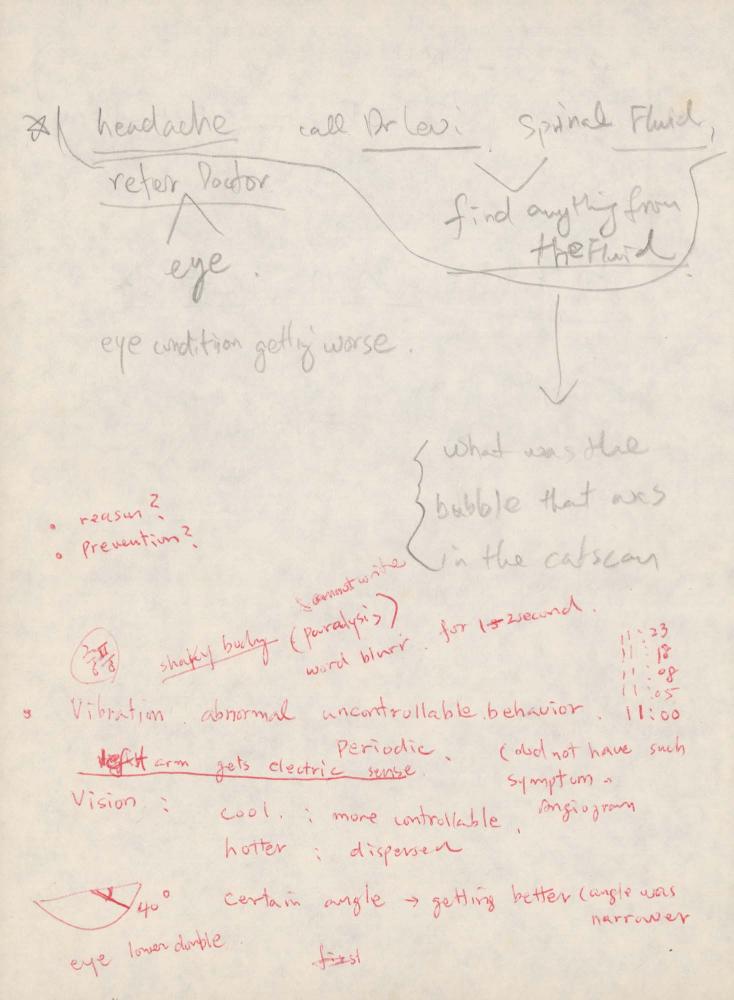 headache call Dr Levi. Spinal Fluid,
refer Doctor
find anything from
the Fluid
eye.
eye condition getting worse.
what was the
bubble that was
in the catscan
• reason?
• Prevention?
cannot write
shaky body (paralysis)
word blurr. for 1-2 second.
11:23
11:18
11:08
11:05
11:00
• Vibration. abnormal uncontrollable behavior.
Periodic.
left arm gets electric sense.
(did not have such
symptom
Angiogram
Vision: cool. : more controllable.
hotter : dispersed
40° certain angle → getting better (angle was
narrower
eye lower double.
first